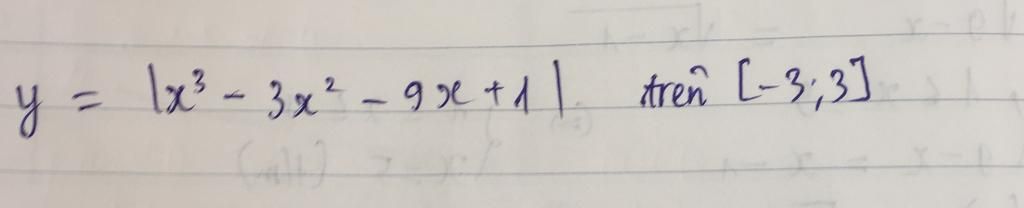 y = |x³ - 3x² - 9x + 1| trên [-3;3]